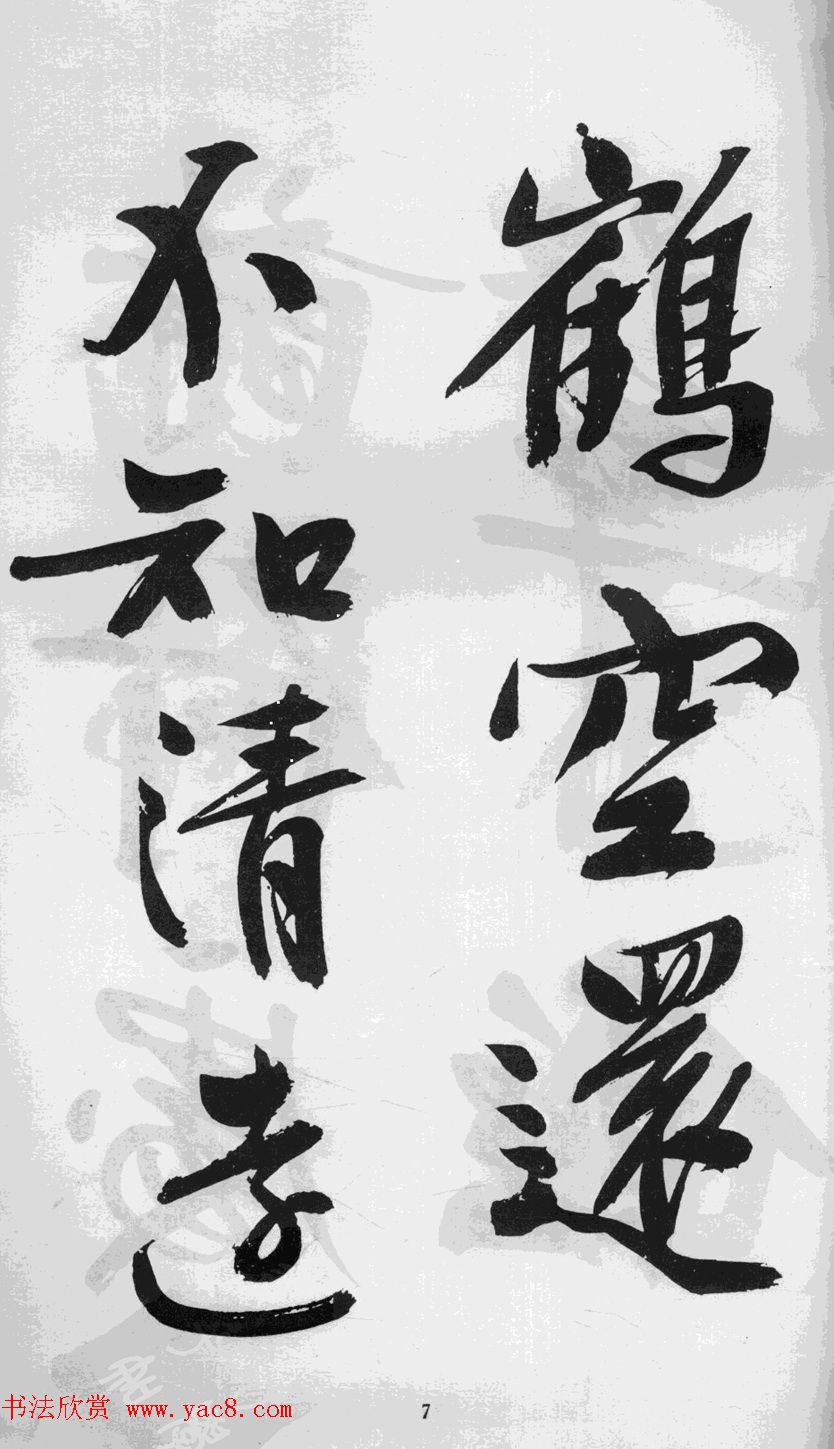 鶴空還
不知清遠
书法欣赏 www.yac8.com
7